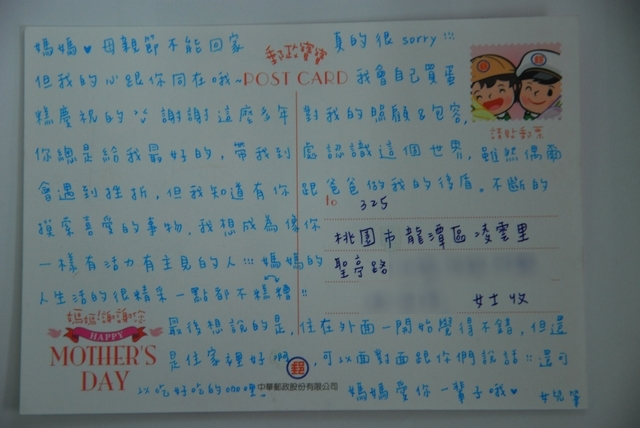 媽媽♥母親節不能回家 真的很sorry!!!
郵政寶寶
但我的心跟你同在哦~POST CARD 我會自己買蛋
糕慶祝的^^謝謝這麼多年 對我的照顧&包容,
請貼郵票
你總是給我最好的,帶我到 處認識這個世界,雖然偶爾
會遇到挫折,但我知道有你 跟爸爸做我的後盾。不斷的
to 325
摸索喜愛的事物,我想成為像你
桃園市龍潭區凌雲里
一樣有活力有主見的人!!!媽媽的
聖亭路
人生活的很精采一點都不糟糕!!
女士收
媽媽!謝謝您
HAPPY
MOTHER'S
DAY
最後想說的是,住在外面一開始覺得不錯,但還
是住家裡好啊 郵 ,可以面對面跟你們說話!!還可
中華郵政股份有限公司
以吃好吃的ㄋㄋ哩! 媽媽愛你一輩子哦♥ 女兒筆